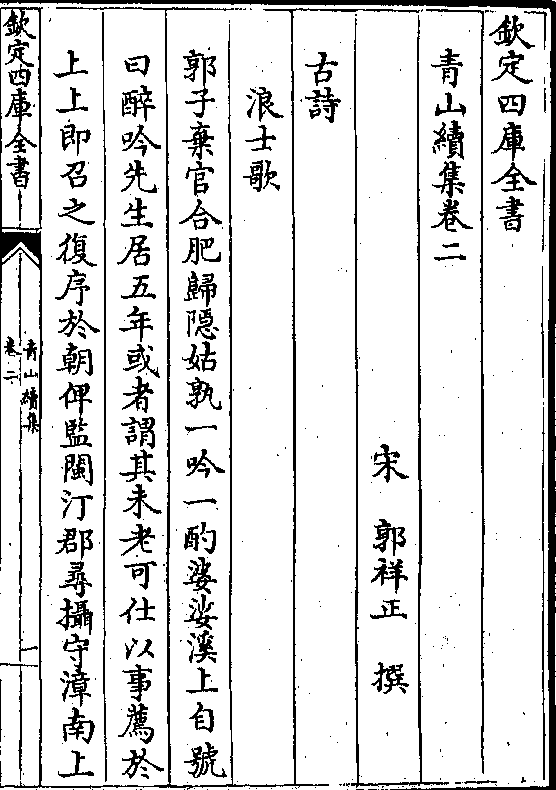 欽定四庫全書
青山續集卷二
宋　郭祥正　撰
古詩
浪士歌
郭子棄官合肥歸隱姑孰一吟一酌婆娑溪上自號
曰醉吟先生居五年或者謂其未老可仕以事薦於
上上即召之復序於朝俾監閩汀郡尋攝守漳南上
欽定四庫全書
青山續集
卷二
一